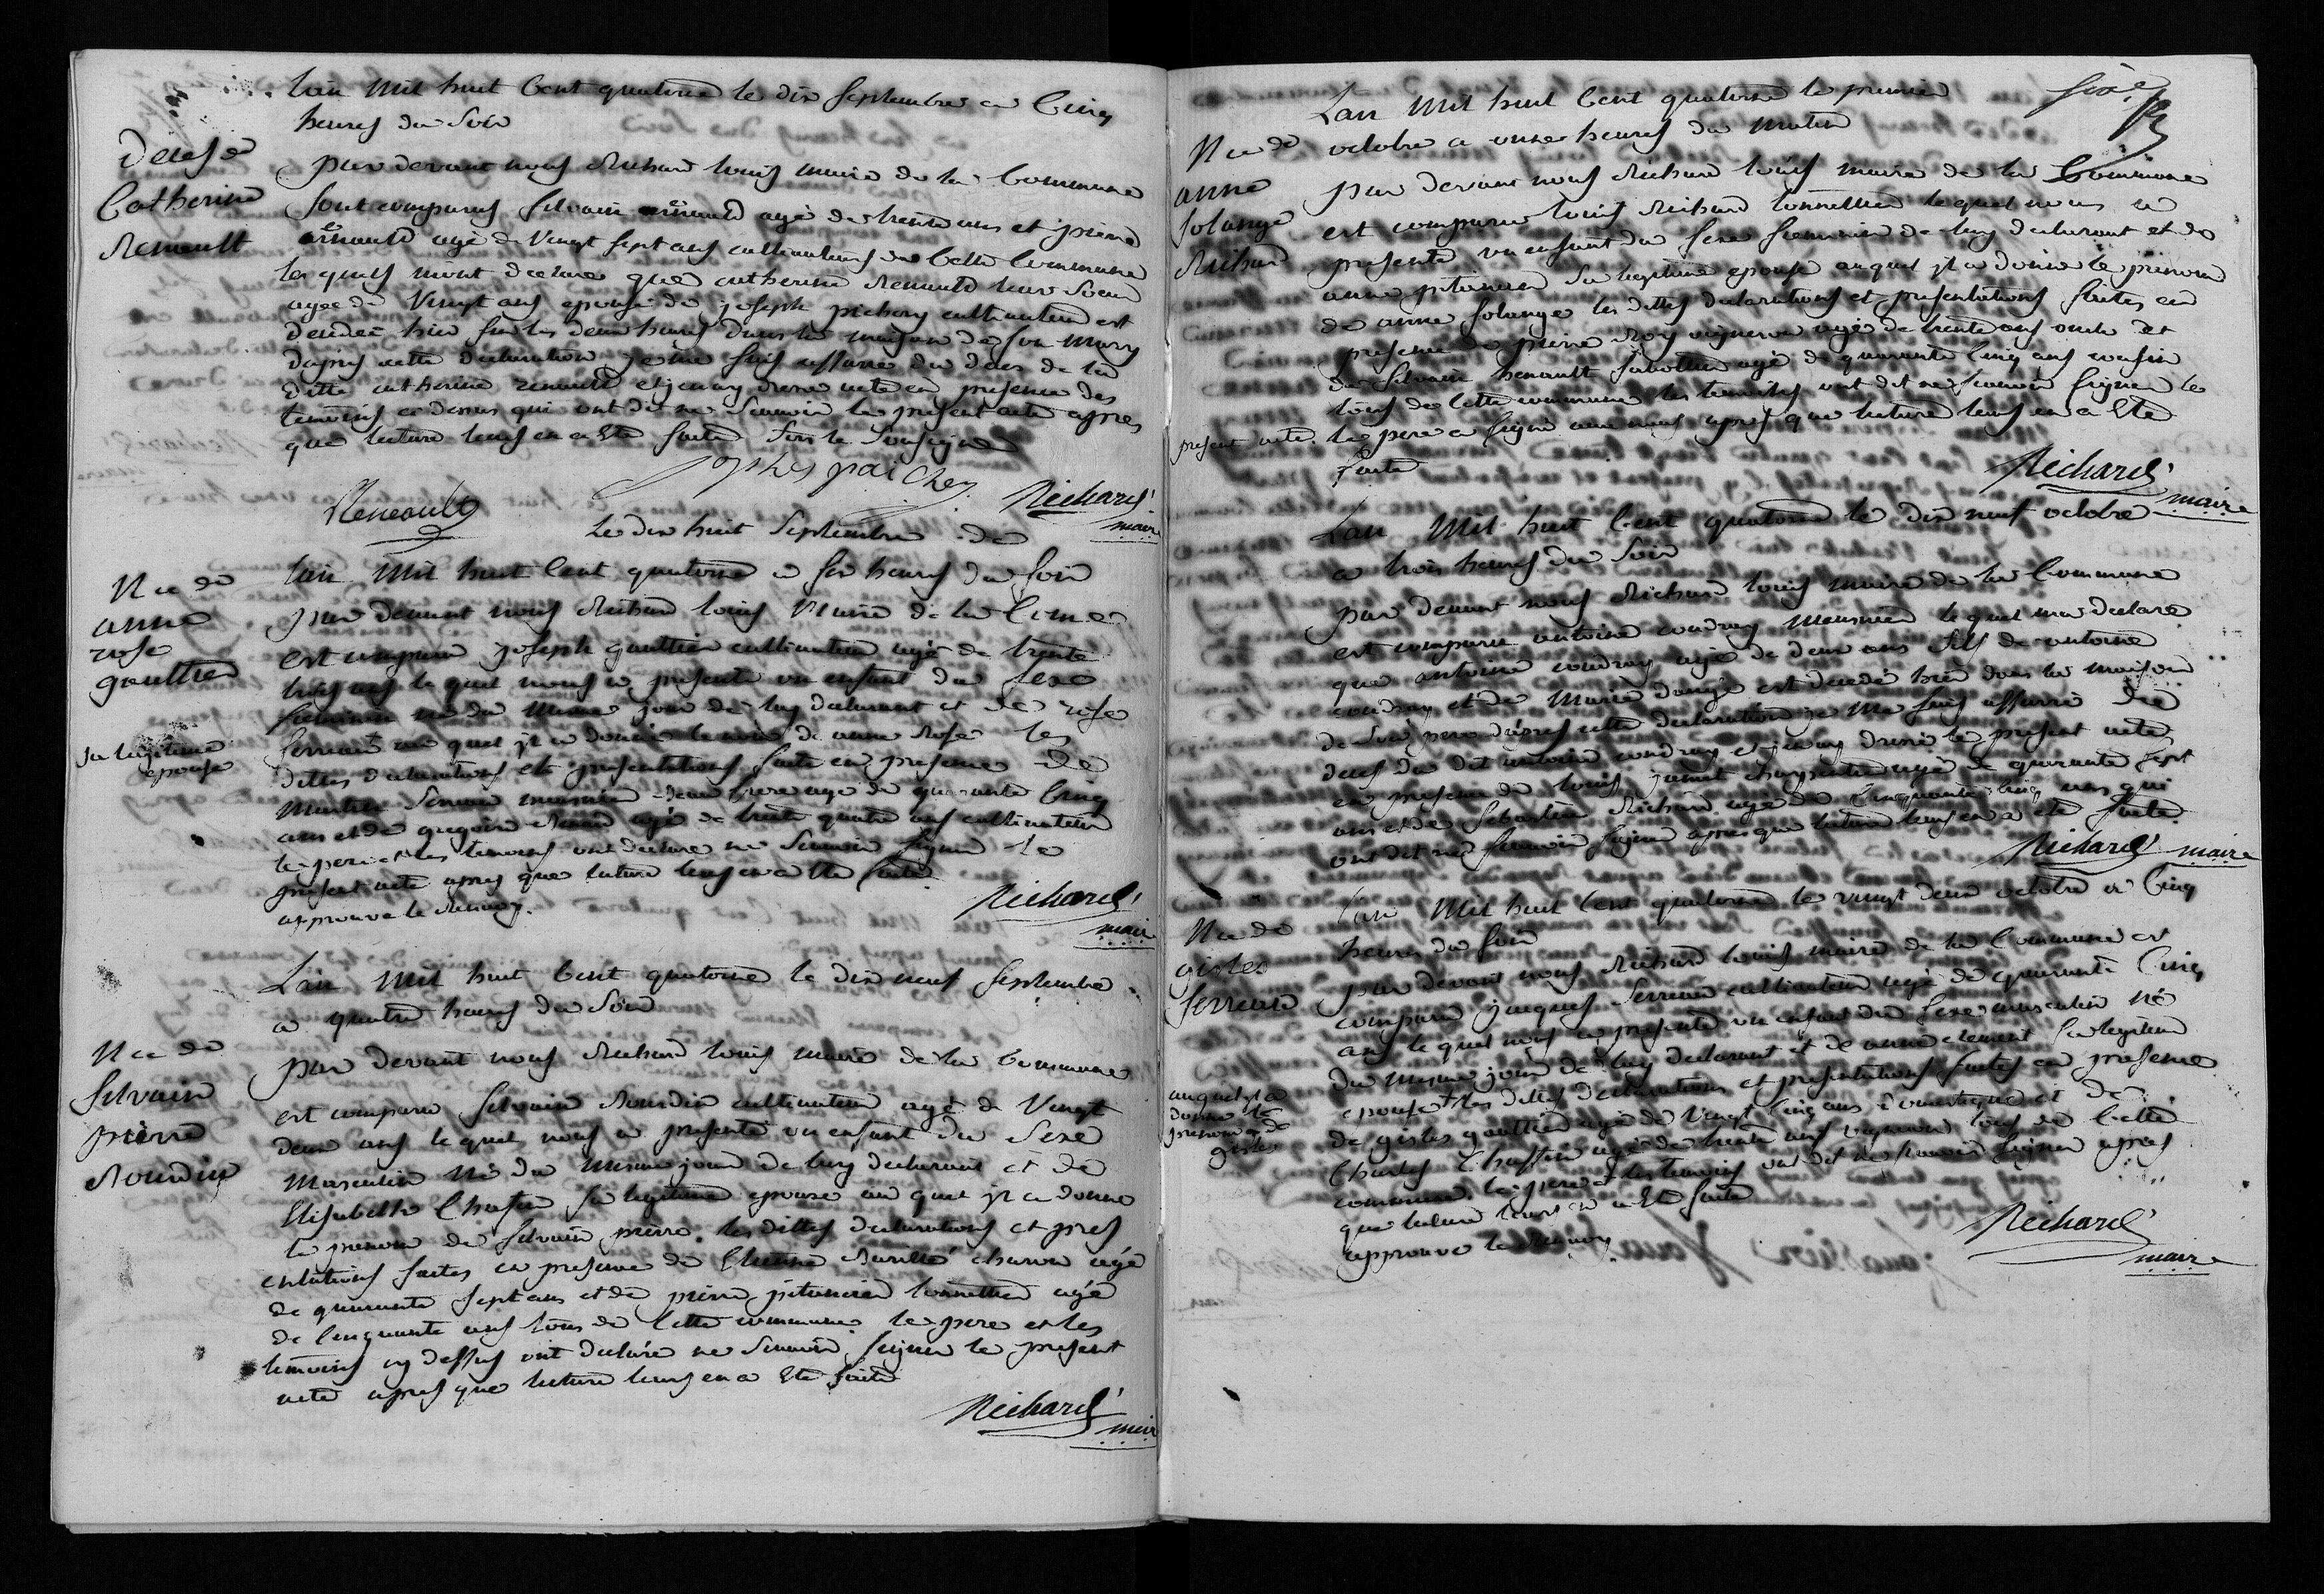 Lan mil huit Cent quatorze le dix septembre a Cinq
heures du Soir
Deces de
Catherine
Renault
par devant nous Richard louis maire de la Commune
sont comparus silvain renault agé de trente ans et pierre
renault agé de vingt sept ans cultivateurs de Cette Commune
les quels mont declare que catherine Renault leur Soeur
agee de Vingt ans epouse de joseph cultivateur est
decedée hier sur les deux heures dans la maison de son mary
dapres cette declaration je me suis assurée du deces de la
ditte catherine renault et jenay dresse acte en presence des
temoins ci dessus qui ont dit ne Scavoir le present acte apres
que lecture leurs en a Ete faite
Reneault
Richard
maire
Le dix huit Septembre
N ce de
anne
rose
gaultier
lan mil huit Cent quatorze a heures du soir
par devant nous Richard louis Maire de la Come
est comparu joseph gaultier cultivateur agé de trente
trois ans le quel nous a presenté un enfant du sexe
feminin né du meme jour de luy declarant et de rose
au quel jl a donné le nom de anne Rose les
sa legitime
epouse
dittes declarations et presentations faite en presence de
agé de quarante Cinq
ans et de gregoire agé de trente quatre ans cultivateur
le pere et les temoins ont declare ne Scavoir signer le
present acte apres que lecture leurs en a Ete faite
approuve le Renvoy.
Richard
maire
Lan mil huit Cent quatorze le dix neuf septembre
a quatre heures du Soir
N ce de
silvain
pierre
Rourdin
par devant nous Richard louis maire de la Commune
est comparu silvain Rourdin cultivateur agé de Vingt
deux ans le quel nous a presenté un enfant du Sexe
Masculin Né du mesme jour de luy declarant et de
Elisabethe sa legitime epouse au quel jl a donne
le prenom de silvain pierre. les dittes declarations et pres
entations faites en presence de Etienne charon agé
de quarante sept ans et de pierre pitancier tonnellier agé
de Cinquante ans tous de Cette commune. le pere et les
temoins cy dessus ont declaré ne Scavoir signer le present
acte apres que lecture leurs en a Ete faite
Richard
maire
Lan mil huit Cent quatorze le premier
octobre a onze heures du matin
N ce de
anne
solange
Richard
par devant nous Richard louis maire de la Commune
est comparu louis Richard tonnellier lequel nous a
presenté un enfant du sexe feminin de luy declarant et de
anne pitancier sa legitime epouse auquel jl a donne le prenom
de anne solange les dittes declarations et presentations faites en
presence de pierre Roy vigneron agé de trente ans oncle et
de silvain Renault sabottier agé de quarante Cinq ans cousin
tous de Cette commune les temoins ont dit ne scavoir signer le
present acte. le pere a signé avec nous apres que lecture leurs en a Ete
faite
Richard
maire
Lan mil huit Cent quatorze le dix neuf octobre
a trois heures du Soir
par devant nous Richard louis maire de la Commune
est comparu antoine coudray Meusnier le quel ma declare
que antoine coudray agé de deux ans fils de antoine
coudray et de Marie est decedé hier dans la maison
de son pere dapres cette declaration je Me suis assurré du
deces du dit antoine coudray et jenay dressé le present acte
en presence de louis charpentier agé de quarante sept
ans et de Sebastien Richard agé de Cinquante Cinq ans qui
ont dit ne scavoir signer apres que lecture leurs en a ete faite.
Richard maire
Lan mil huit Cent quatorze le vingt deux octobre a Cinq
heures du soir
N ce de
gisles
ferreant
par devant nous Richard louis maire de la Commune est
comparu jacques cultivateur agé de quarante Cinq
ans le quel nous a presenté un enfant du sexe masculin né
du mesme jour de luy declarant et de anne clement sa legitime
epouse les dittes declarations et presentations faites en presence
auquel jl a
donne le
prenom de
gisles
de gisles gaultier agé de vingt Cinq ans domestique et de
Charles agé de trente ans vigneron tous de Cette
commune. le pere et les temoins ont dit ne scavoir signer apres
que lecture leurs en a Ete faite
approuve le Renvoy
Richard
maire